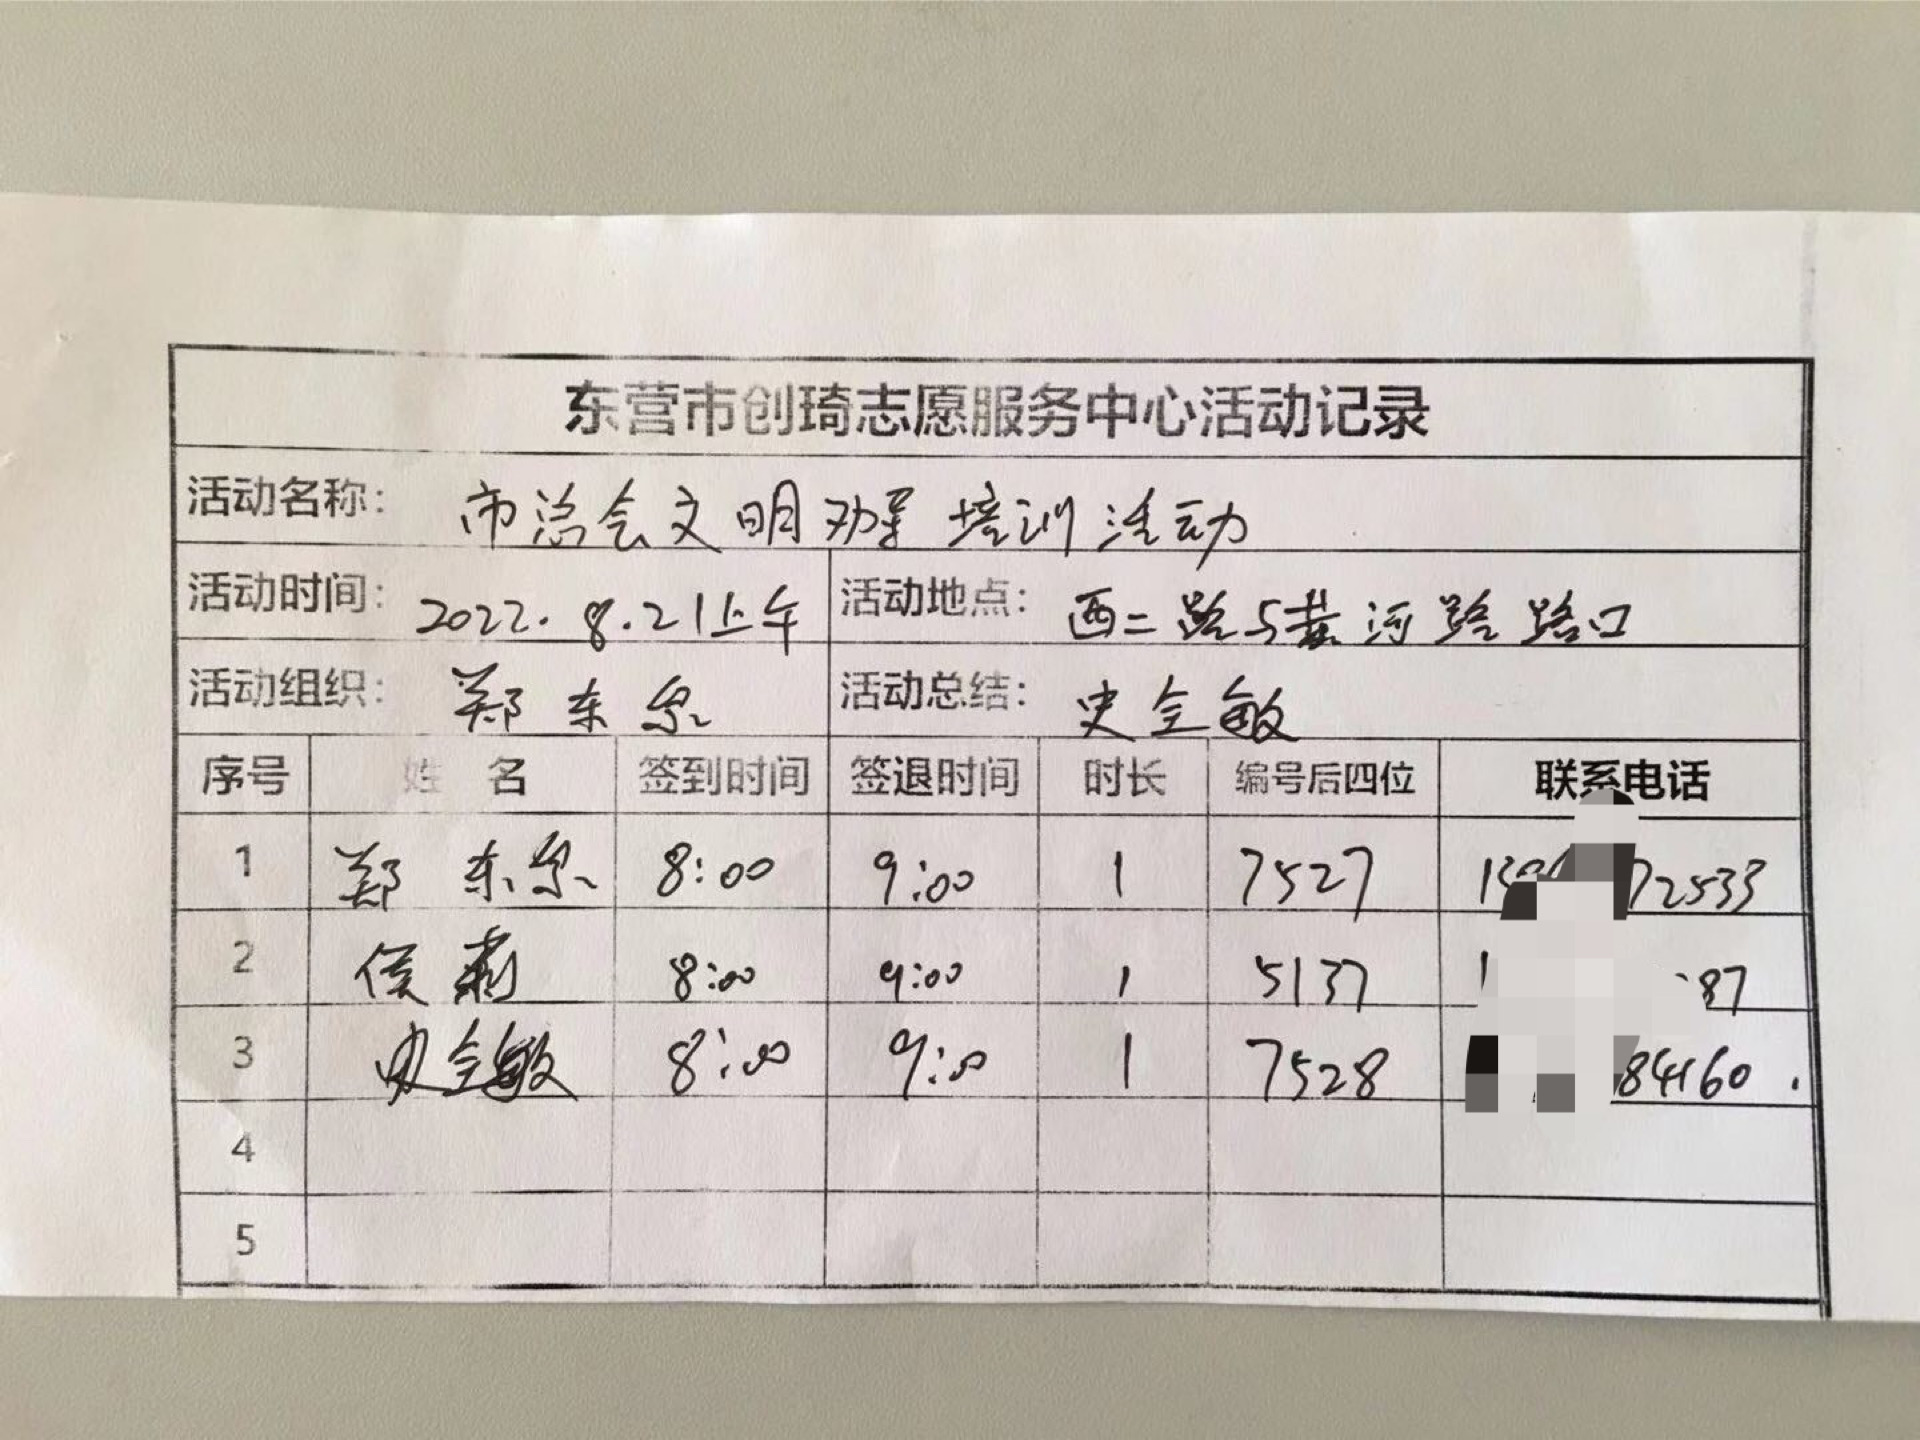 东营市创琦志愿服务中心活动记录
活动名称: 市总会文明劝导培训活动
活动时间: 2022.8.21上午 活动地点: 西二路与黄河路路口
活动组织: 郑东泉 活动总结: 史全敏
序号 姓 名 签到时间 签退时间 时长 编号后四位 联系电话
1 郑东泉 8:00 9:00 1 7527 72533
2 侯莉 8:00 9:00 1 5137 87
3 史全敏 8:00 9:00 1 7528 84160
4
5